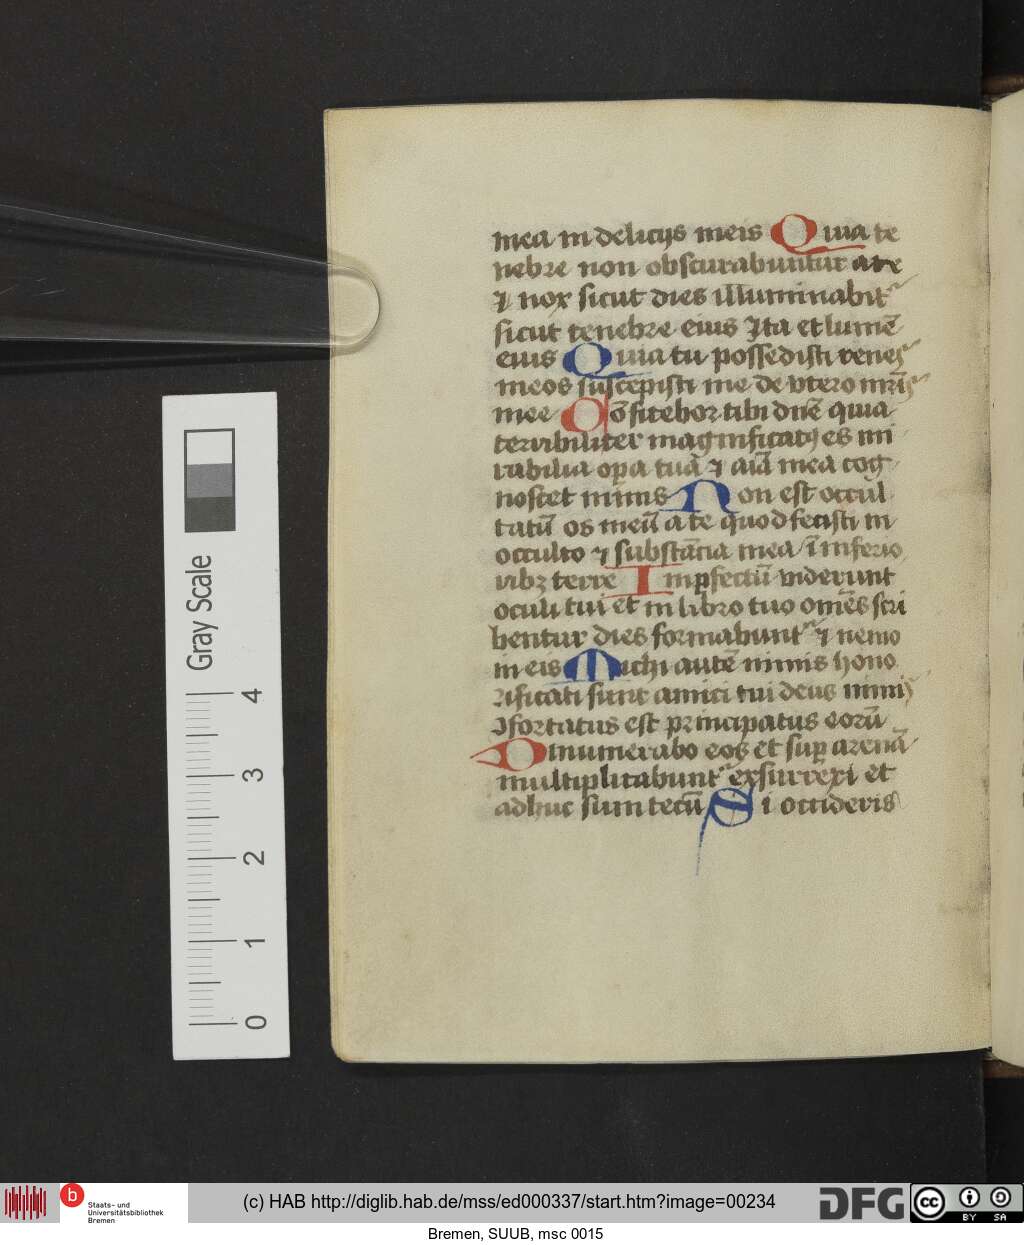 mea in delicijs meis Quia te
nebre non obscurabuntur a te
⁊ nox sicut dies illuminabit᷑
sicut tenebre eius Ita et lumē
eius Quia tu possedisti renes
meos suscepisti me de vtero mr̄is
mee Cōfitebor tibi dn̄e quia
terribiliter magnificatꝰ es mi
rabilia oꝑa tua ⁊ aīa mea cog
noscet nimis Non est occul
tatū os meū a te quod fecisti in
occulto ⁊ substācia mea ī inferio
ribꝫ terre Imꝑfectū viderunt
oculi tui et in libro tuo om̄es scri
bentur dies formabunt᷑ ⁊ nemo
in eis Michi autē nimis hono
rificati sunt amici tui deus nimis
ↄfortatus est principatus eorū
Dinumerabo eos et suꝑ arenā
multiplicabunt᷑ exsurrexi et
adhuc sum tecū Si occideris
Gray Scale
4
3
2
1
0
b
Staats- und
Universitätsbibliothek
Bremen
(c) HAB http://diglib.hab.de/mss/ed000337/start.htm?image=00234
DFG
cc
BY SA
Bremen, SUUB, msc 0015